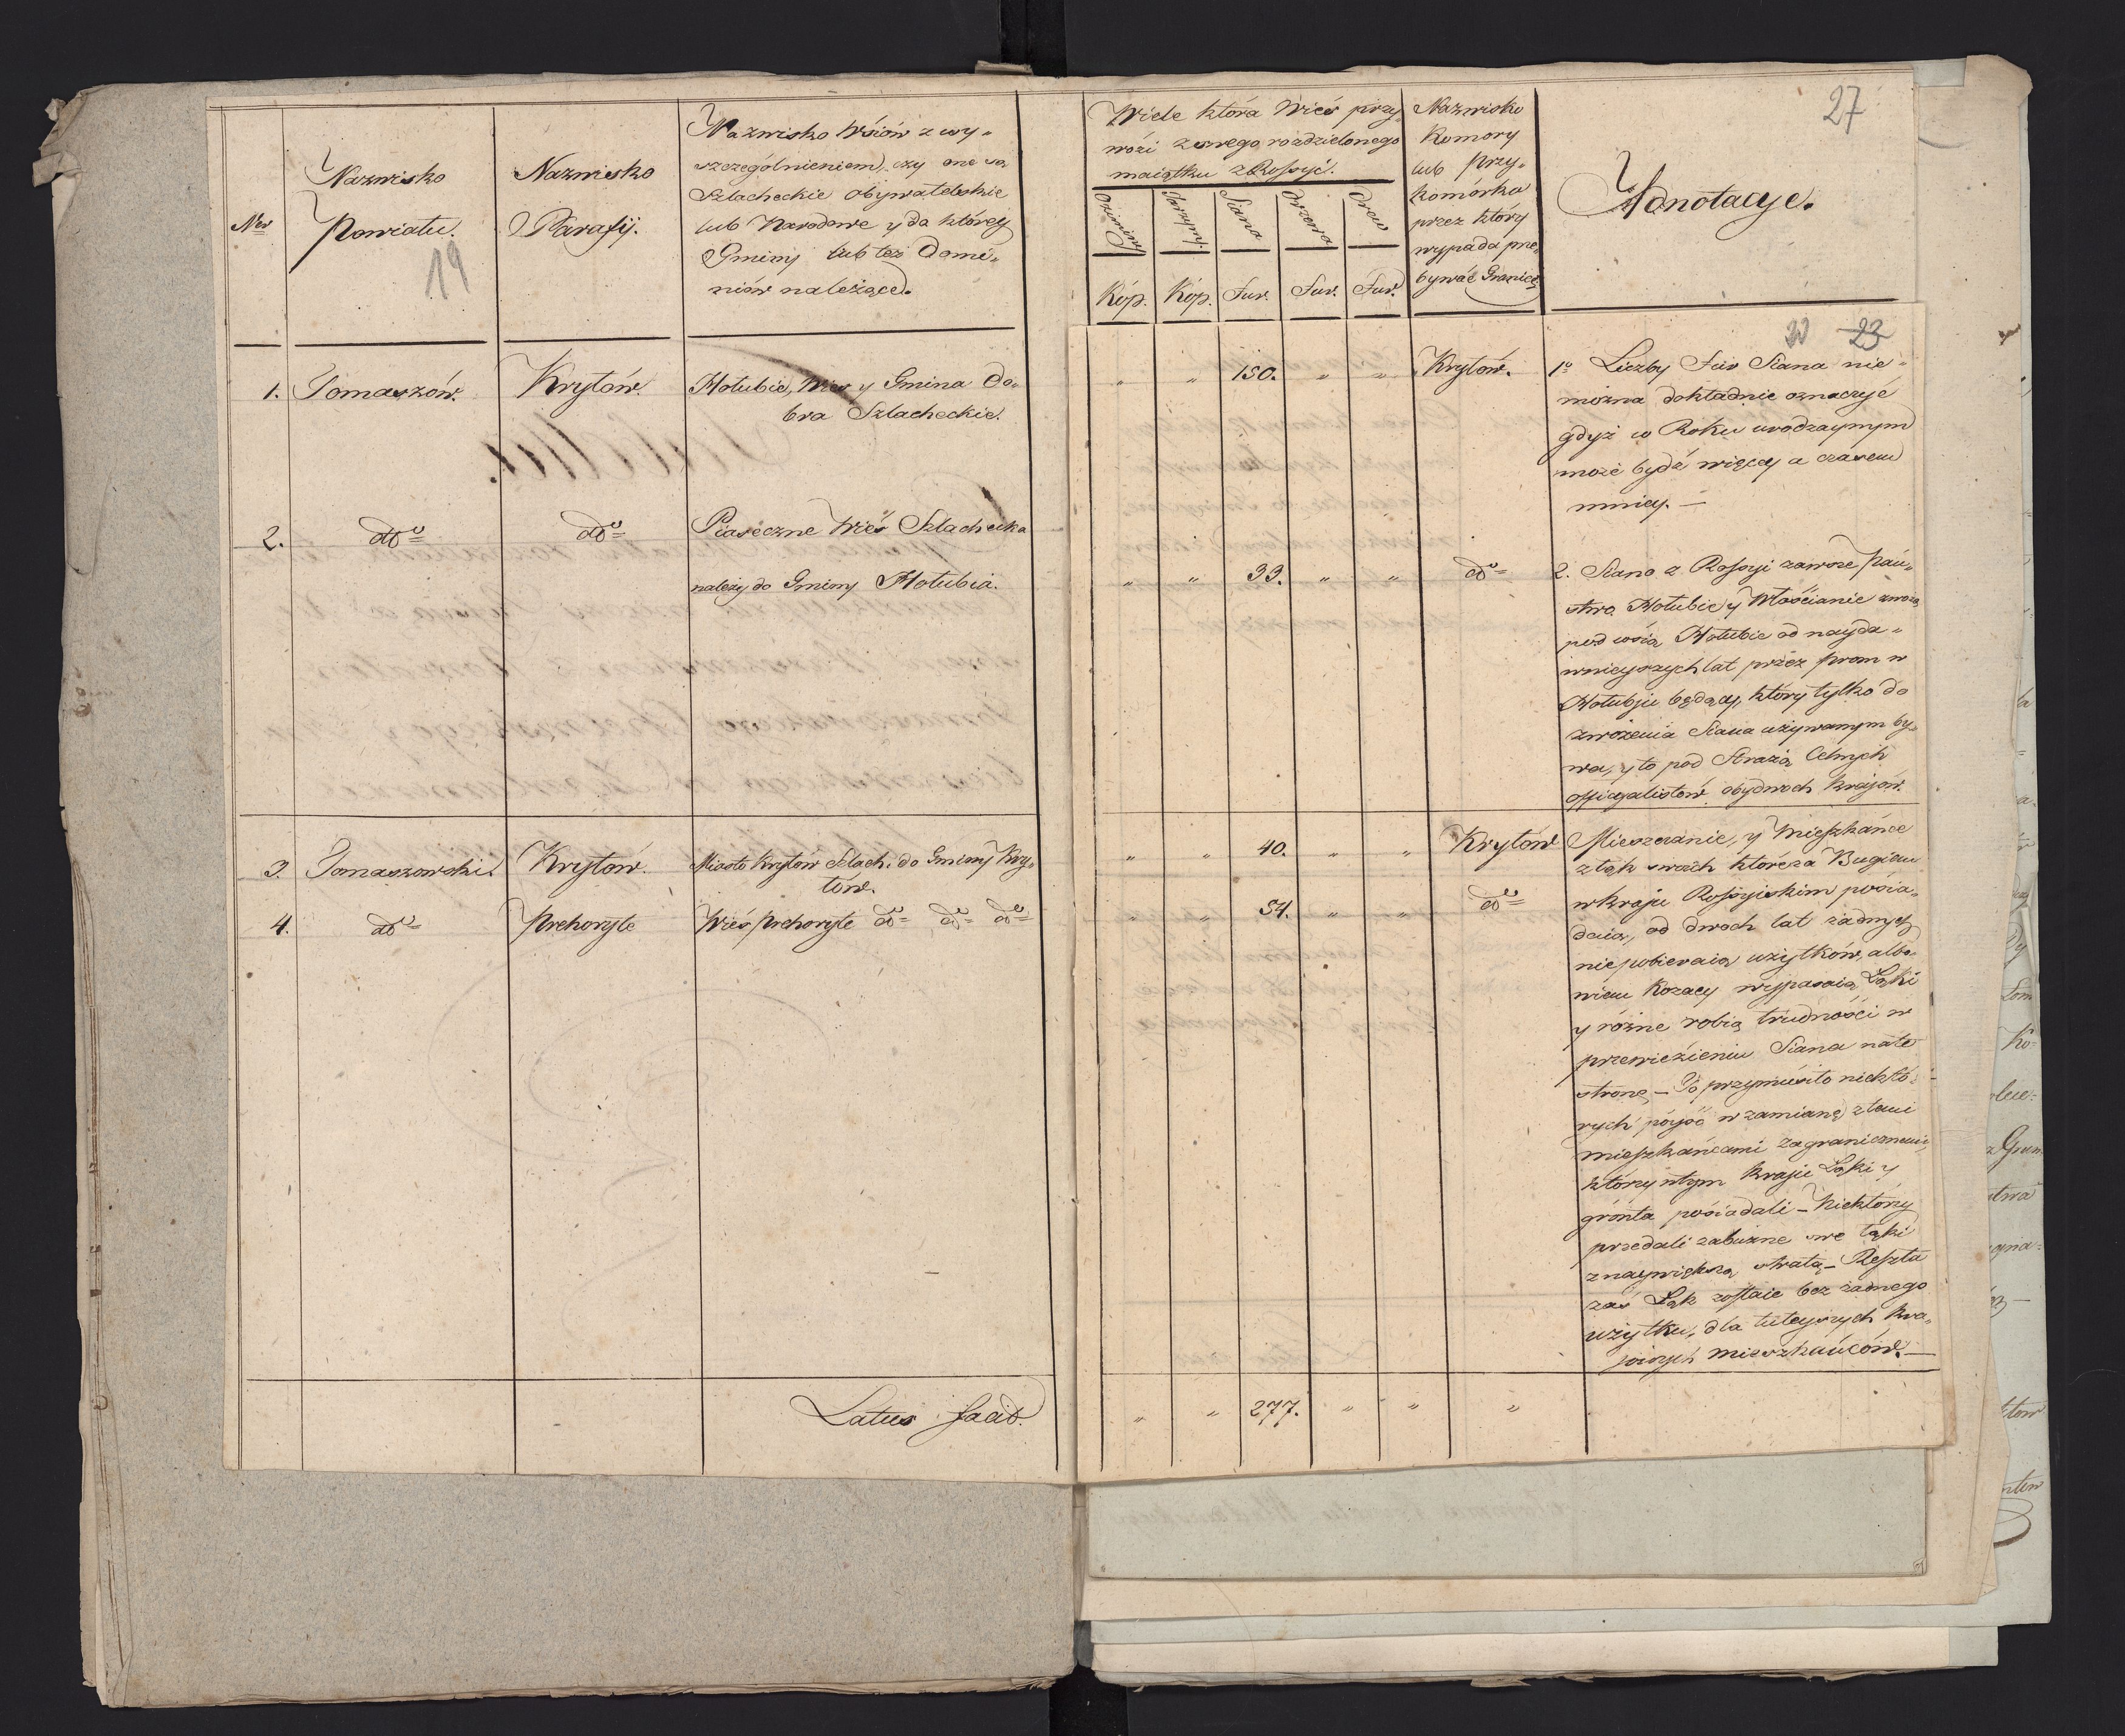 Nro
Nazwisko
Powiatu.
19
Nazwisko
Parafij.
Nazwisko Wsiów z wy„
szczególnieniem, czy one są
Szlacheckie obywatelskie
lub Narodowe y do którey
Gminy lub też Domi„
niów należące.
Wiele która Wieś przy„
wozi z swego rozdzielonego
maiątku z Rossyi.
Oziminy
Jarzyny
Siana
Drzewa
Drew
Kóp.
Kóp.
Fur.
Fur.
Fur.
Nazwisko
Komory
lub Przy„
komorka
przez który
wypada prze„
bywać Granicę
Adnotacye.
27
20 23
1. Tomaszów. Kryłów. Hołubie, Wieś y Gmina Do„
bra Szlacheckie.
„ „ 150. „ „ Kryłów.
1o Liczby Fur Siana nie„
można dokładnie oznaczyć
gdyż w Roku urodzaynym
może bydź więcey a czasem
mniey. —
2. dto dto Piaseczne Wieś Szlachecka
należy do Gminy Hołubia.
„ „ 33. „ „ dto
2. Siano z Rossyi zawsze Pań„
stwo Hołubie y Włościanie zwożą
pod wsią Hołubie od nayda„
wnieyszych lat przez prom w
Hołubju będący, który tylko do
zwożenia Siana używanym by„
wa, y to pod Strażą Celnych
officyalistów obydwoch Krajów.
3. Tomaszowski Kryłów. Miasto Kryłów Szlach. do Gminy Kry„
łów.
„ „ 40. „ „ Kryłów
4. dto Prehoryłe Wieś Prehoryłe dto dto dto
„ „ 54. „ „ dto
Mieszczanie, y Mieszkańce
z łąk swoich które za Bugiem
w kraju Rossyiskim posia„
daią, od dwoch lat żadnych
nie pobieraią użytków, albo„
wiem Kozacy wypasaią Łąki
y różne robią trudności w
przewiezieniu Siana na tę
stronę. — To przymusiło niektó„
rych póyść w zamianę z temi
mieszkańcami zagranicznemi,
którzy w tym kraju Łąki y
gronta posiadali — Niektórzy
przedali zabużne swe łąki
z naywiększą stratą. — Reszta
zaś Łąk zostaie bez żadnego
użytku, dla tuteyszych Kra„
jowych mieszkańców. —
Latus facit.
„ „ 277. „ „ „